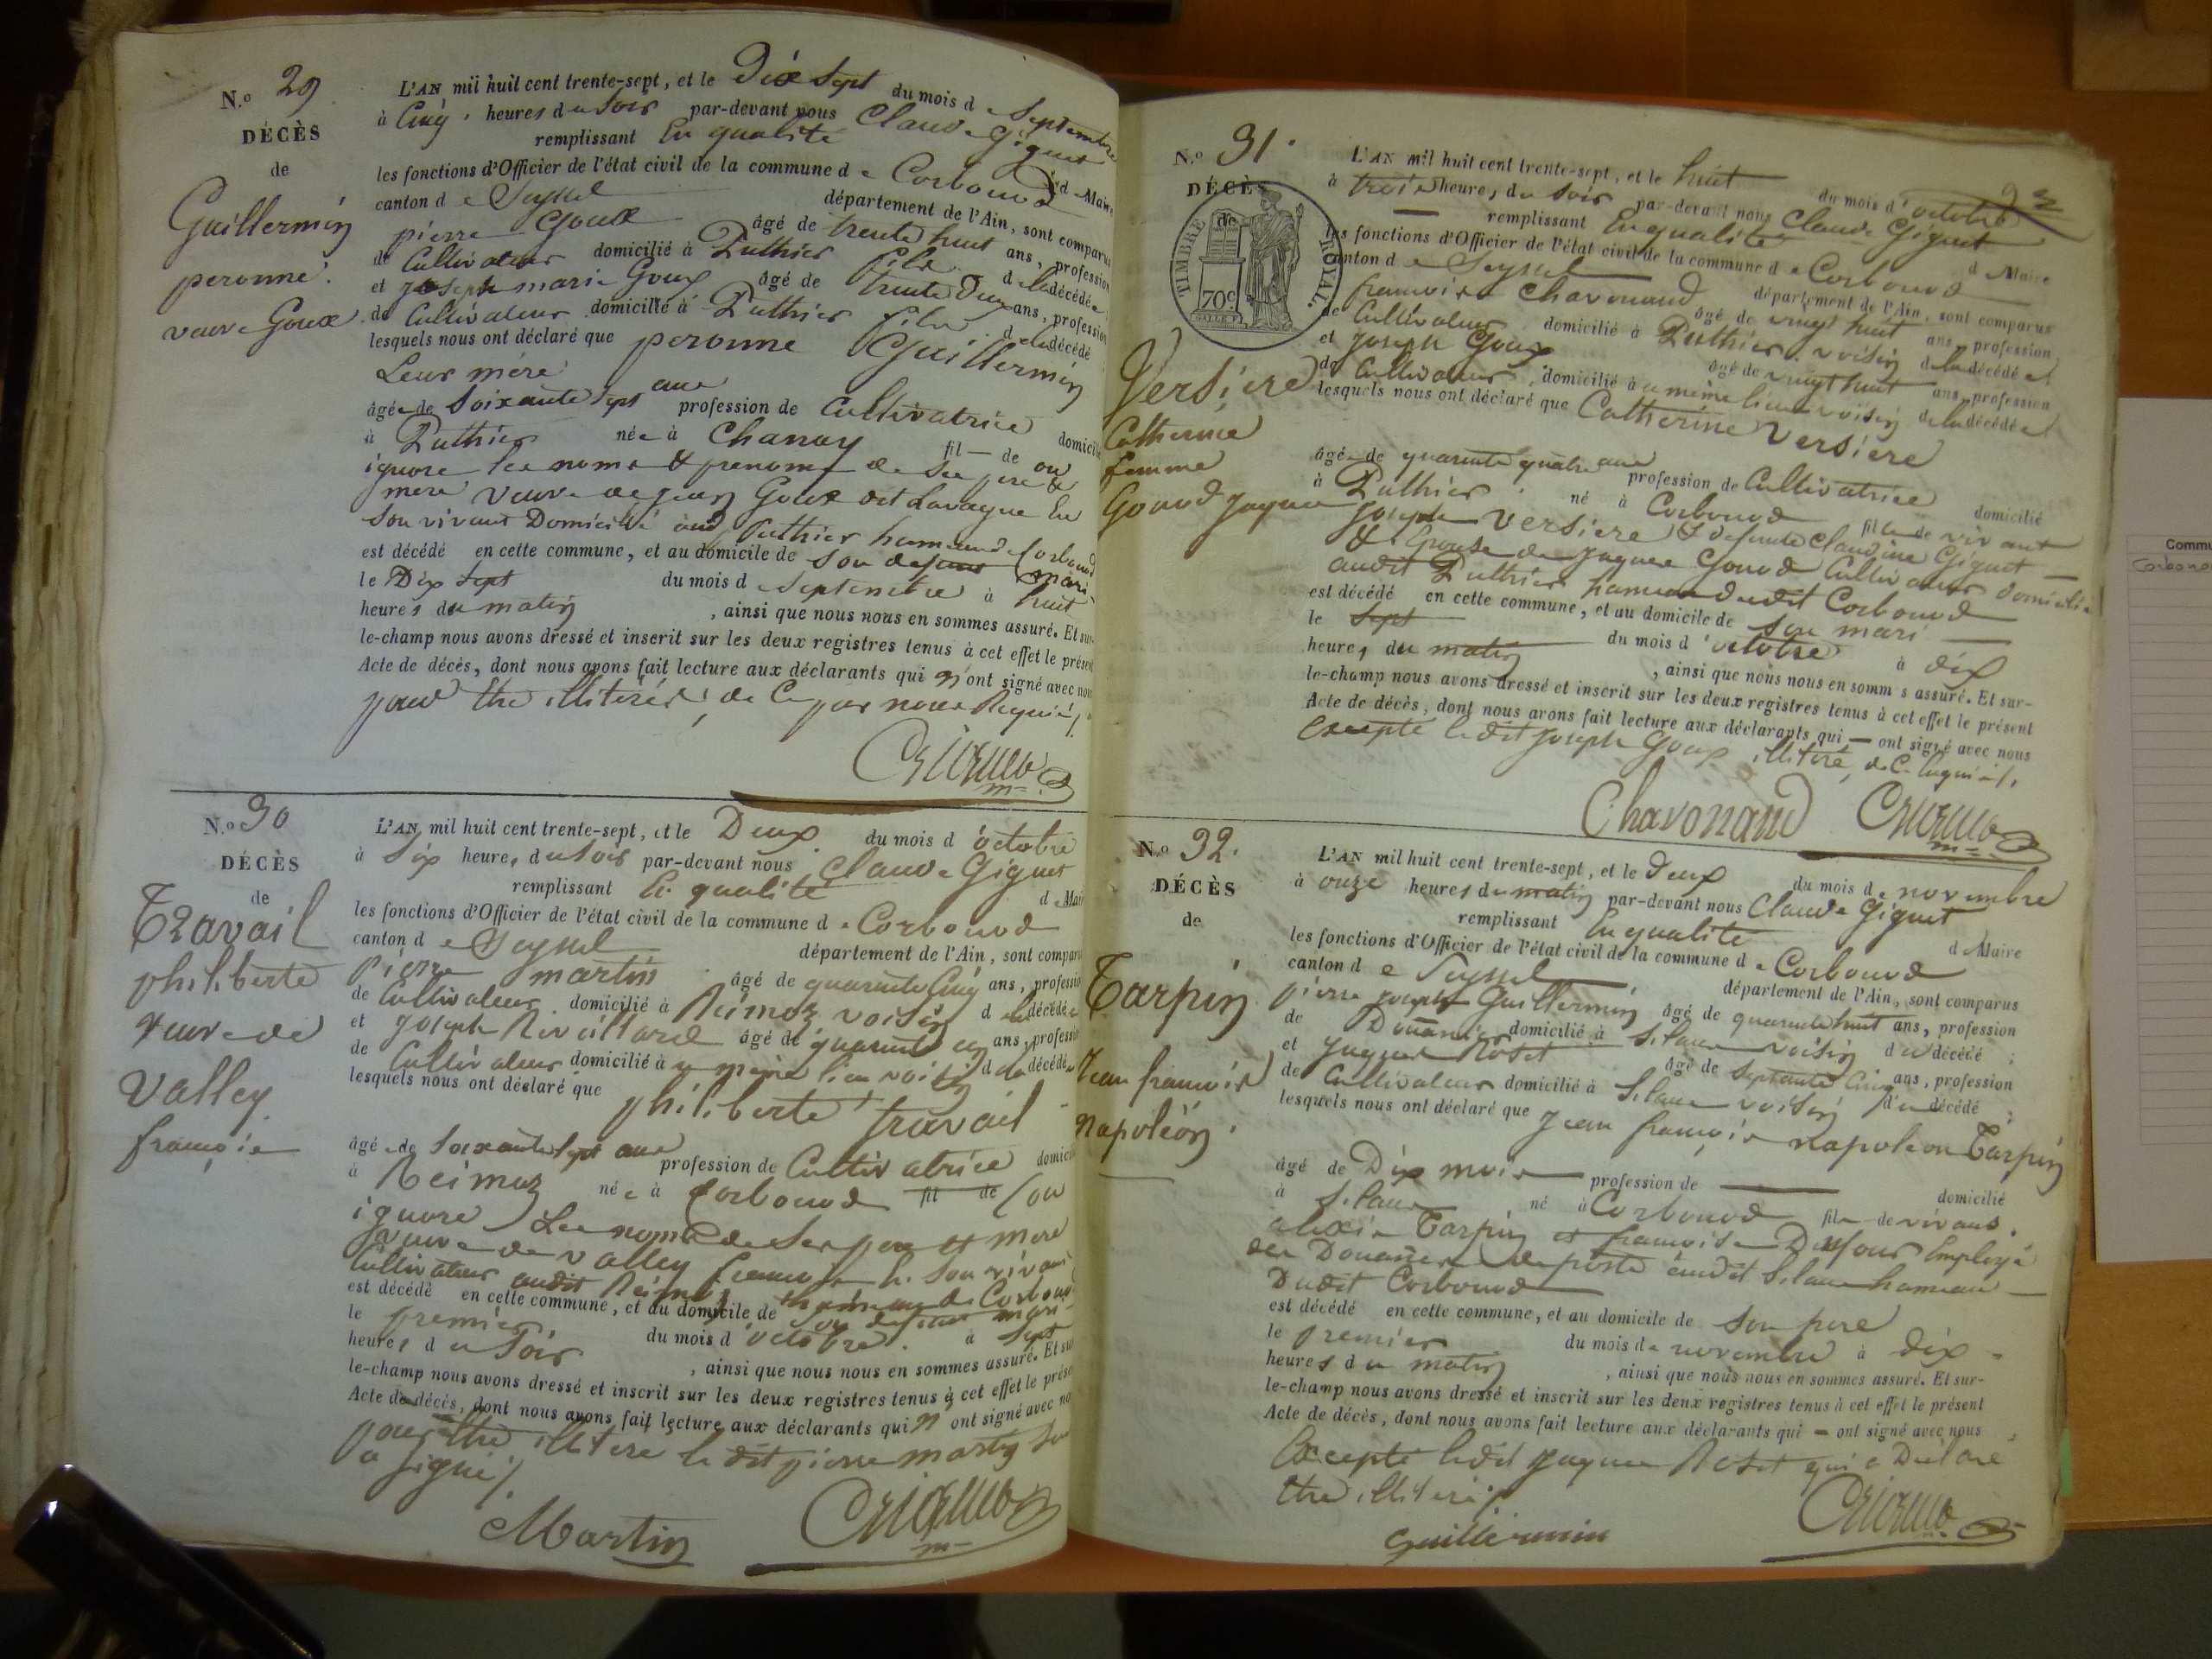 N.º 29
DÉCÈS
de
Guillermin
peronne
veuve Goux
L'AN mil huit cent trente-sept, et le Dix Sept du mois de Septembre
à Cinq heures du Soir par-devant nous Claude Giguet
remplissant En qualité de Maire
les fonctions d'Officier de l'état civil de la commune de Corbonod
canton de Seyssel département de l'Ain, sont comparus
pierre Goux âgé de trente huit ans, profession
de Cultivateur domicilié à Puthier fils de la décédée
et joseph marie Goux âgé de trente Deux ans, profession
de Cultivateur domicilié à Puthier fils de la décédé
lesquels nous ont déclaré que peronne Guillermin
Leur mère
âgée de Soixante Sept ans profession de Cultivatrice domicilié
à Puthier née à Chanay fil — de on
ignore les noms & prenoms de Ses pere &
mere veuve de jean Goux dit Lavague En
Son vivant Domicilié aud Puthier hameau de Corbonod
est décédé en cette commune, et au domicile de Son defunt mari
le Dix Sept du mois de Septembre à huit
heures du matin , ainsi que nous nous en sommes assuré. Et sur-
le-champ nous avons dressé et inscrit sur les deux registres tenus à cet effet le présent
Acte de décès, dont nous avons fait lecture aux déclarants qui n'ont signé avec nous
pour Etre illiterés, de Ce par nous Requis
N.º 30
DÉCÈS
de
Travail
philiberte
veuve de
Valley
françois
L'AN mil huit cent trente-sept, et le Deux du mois d'octobre
à Six heures du Soir par-devant nous Claude Giguet
remplissant En qualité de Maire
les fonctions d'Officier de l'état civil de la commune de Corbonod
canton de Seyssel département de l'Ain, sont comparus
pierre martin âgé de quarante Cinq ans, profession
de Cultivateur domicilié à Reimoz voisin de la décédée
et joseph Revillard âgé de quarante un ans, profession
de Cultivateur domicilié à u même lieu voisin de la décédée
lesquels nous ont déclaré que
philiberte travail
âgée de Soixante Sept ans profession de Cultivatrice domicilié
à Reimoz née à Corbonod fil de (on
ignore) Les noms de Ses pere et mere
veuve de valley francois En Son vivant
Cultivateur audit Reimoz hameau de Corbonod
est décédé en cette commune, et au domicile de Son defunt mari
le premier du mois d'octobre à Sept
heures du Soir , ainsi que nous nous en sommes assuré. Et sur-
le-champ nous avons dressé et inscrit sur les deux registres tenus à cet effet le présent
Acte de décès, dont nous avons fait lecture aux déclarants qui n'ont signé avec nous
pour Etre illitere le dit pierre martin
a Signé
Martin
N.º 31.
DÉCÈS
de
TIMBRE ROYAL
70c
Versière
Catherine
femme
Gonod jaques
L'AN mil huit cent trente-sept, et le huit du mois d'octobre
à trois heures du Soir par-devant nous Claude Giguet
remplissant En qualité de Maire
les fonctions d'Officier de l'état civil de la commune de Corbonod
canton de Seyssel département de l'Ain, sont comparus
francois Chavonand âgé de vingt huit ans, profession
de Cultivateur domicilié à Puthier voisin de la décédée
et joseph Goux âgé de vingt huit ans, profession
de Cultivateur, domicilié à u même lieu voisin de la décédée
lesquels nous ont déclaré que Catherine Versiere
âgée de quarante quatre ans profession de Cultivatrice domicilié
à Puthier né à Corbonod fille de vivant
joseph Versiere & defunte Claudine Giguet
& Epouse de jaques Gonod Cultivateur Domicilié
audit Puthier hameau dudit Corbonod
est décédé en cette commune, et au domicile de Son mari
le Sept du mois d'octobre à dix
heures du matin , ainsi que nous nous en somm s assuré. Et sur-
le-champ nous avons dressé et inscrit sur les deux registres tenus à cet effet le présent
Acte de décès, dont nous avons fait lecture aux déclarants qui — ont signé avec nous
Excepté le dit joseph Goux, illitéré, de Ce Requis
Chavonand
N.º 32.
DÉCÈS
de
Tarpin
Jean françois
Napoléon
L'AN mil huit cent trente-sept, et le Deux du mois de novembre
à onze heures du matin par-devant nous Claude Giguet
remplissant En qualité de Maire
les fonctions d'Officier de l'état civil de la commune de Corbonod
canton de Seyssel département de l'Ain, sont comparus
pierre joseph Guillermin âgé de quarante huit ans, profession
de Douanier domicilié à Silans voisin du décédé
et jaques Roset âgé de Septante Cinq ans, profession
de Cultivateur domicilié à Silans voisin du décédé
lesquels nous ont déclaré que Jean françois napoleon Tarpin
âgé de Dix mois profession de — domicilié
à Silans né à Corbonod fils de vivans
alexis Tarpin et francoise Dufour Employé
des Douanes de poste audit Silans hameau
Dudit Corbonod
est décédé en cette commune, et au domicile de Son pere
le premier du mois de novembre à dix
heures du matin , ainsi que nous nous en sommes assuré. Et sur-
le-champ nous avons dressé et inscrit sur les deux registres tenus à cet effet le présent
Acte de décès, dont nous avons fait lecture aux déclarants qui — ont signé avec nous
Excepté ledit jaques Roset qui a Déclaré
Etre illiteré
Guillermin
Commu
Corbonod